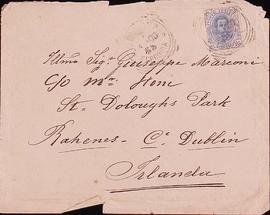 Illmo Sigr Giuseppe Marconi
c/o Mrs
St. Doloughs Park
Rahenes - Co Dublin
Irlanda